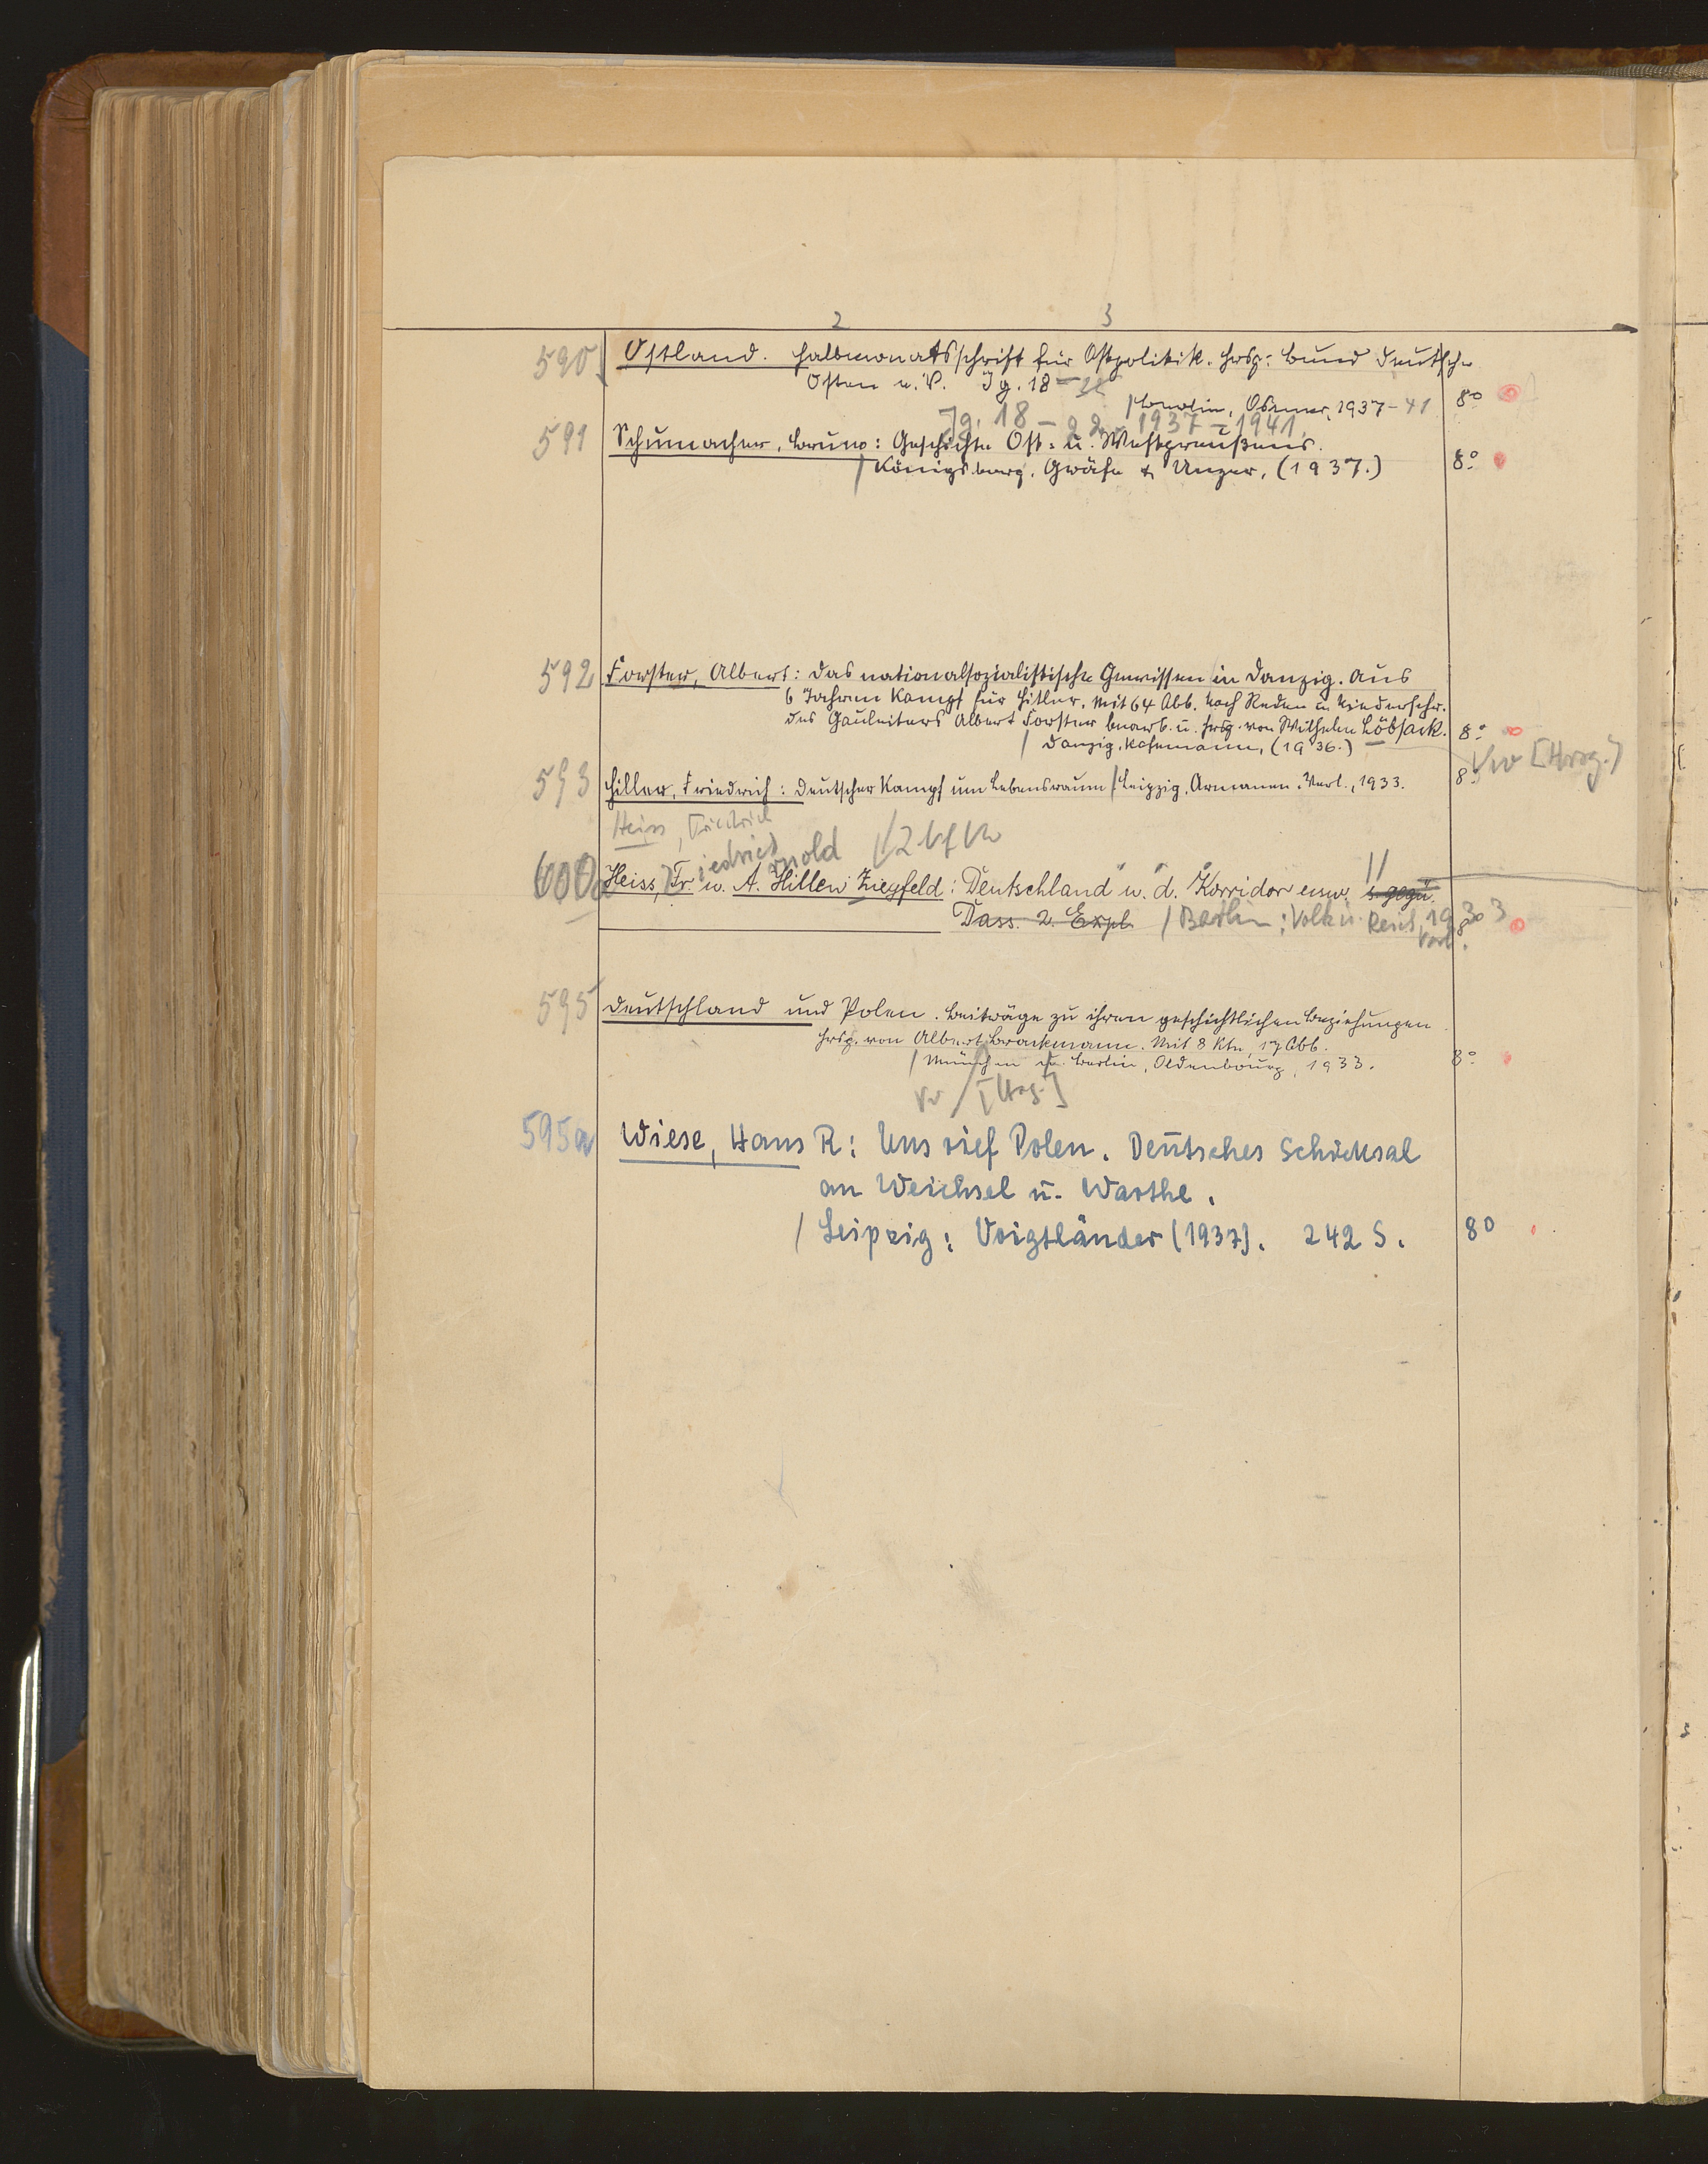 2 3
590 Ostland. Halbmonatsschrift für Ostpolitik. Hrsg: Bund Deutscher
Osten e. V. Jg. 18 - 22
/ Berlin, Osmer, 1937-41 8°
Jg. 18 - 22. 1937 - 1941.
591 Schumacher, Bruno: Geschichte Ost- u. Westpreußens.
/ Königsberg, Gräfe & Unzer, (1937.) 8°
592 Forster, Albert: Das nationalsozialistische Gewissen in Danzig. Aus
6 Jahren Kampf für Hitler. Mit 64 Abb. Nach Reden u. Niederschr.
des Gauleiters Albert Forster bearb. u. hrsg. von Wilhelm Löbsack.
/ Danzig, Kafemann, (1936.) 8°
Vw [Hrsg.]
593 Hiller, Friedrich: Deutscher Kampf um Lebensraum / Leipzig, Armanen-Verl., 1933. 8°
Heiss, Friedrich
600a Heiss, Friedrich u. Arnold Hillen Ziegfeld: Deutschland u. d. Korridor usw.
Dass. 2. Expl. / Berlin: Volk u. Reich Verl. 1933 8°
595 Deutschland und Polen. Beiträge zu ihren geschichtlichen Beziehungen.
Hrsg. von Albert Brackmann. Mit 8 Ktn, 17 Abb.
/ München u. Berlin, Oldenbourg, 1933. 8°
Vw [Hrsg.]
595a Wiese, Hans R: Uns rief Polen. Deutsches Schicksal
an Weichsel u. Warthe.
/ Leipzig: Voigtländer (1937). 242 S. 8°